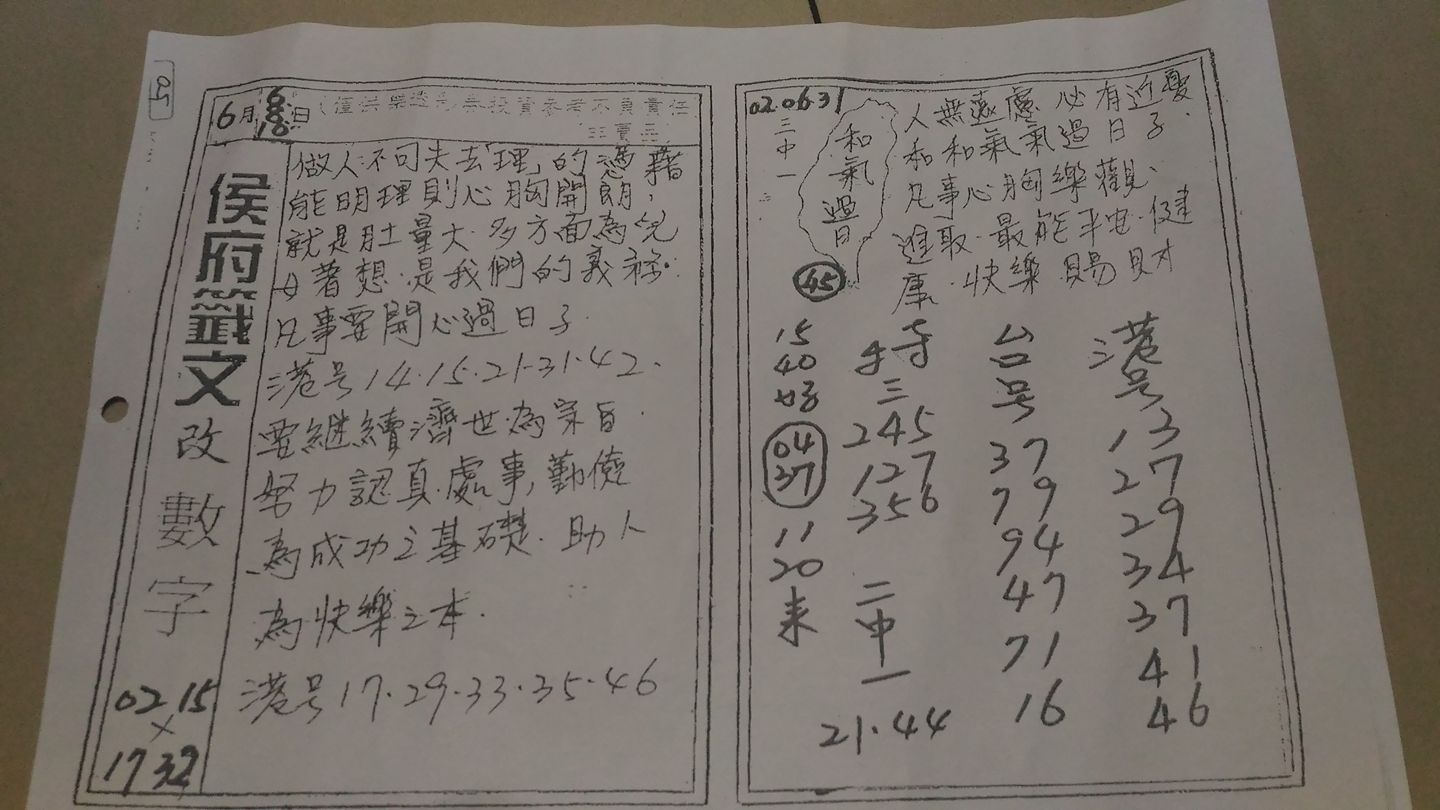 05
6月
6
8
18
日
(僅供樂透兌券投資參考不負責任
侯府籤文
改數字
02 15
×
17 32
做人不可失去「理」的憑藉
能明理則心胸開朗,
就是肚量大.多方面為兒
女著想.是我們的義務.
凡事要開心過日子.
港号14.15.21.31.42.
要繼續濟世.為宗旨.
努力認真.處事,勤儉
為成功之基礎.助人
為快樂之本.
港号17.29.33.35.46
02.06.31
三中一
和氣過日
45
人無遠慮 必有近憂.
和和氣氣過日子.
凡事心胸樂觀.
進取.最能平安.健
康.快樂 賜財
15
40
好
04
37
11
20
来
三
245
127
356
二中一
21.44
台号
37
79
94
47
71
16
港号
13
27
29
34
37
41
46